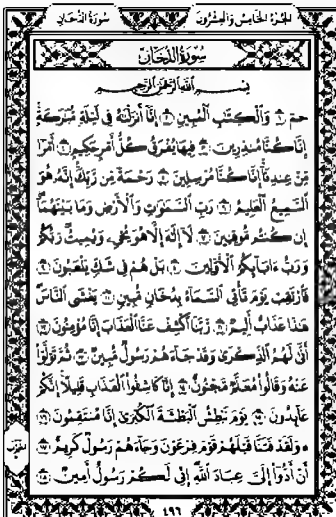 الجُزءُ الخَامِسُ وَالعِشْرُونَ سُورَةُ الدُّخَانِ
سُورَةُ الدُّخَانِ
بِسْمِ ٱللَّهِ ٱلرَّحْمَٰنِ ٱلرَّحِيمِ
حمٓ ١ وَٱلْكِتَٰبِ ٱلْمُبِينِ ٢ إِنَّآ أَنزَلْنَٰهُ فِى لَيْلَةٍ مُّبَٰرَكَةٍ
إِنَّا كُنَّا مُنذِرِينَ ٣ فِيهَا يُفْرَقُ كُلُّ أَمْرٍ حَكِيمٍ ٤ أَمْرًا
مِّنْ عِندِنَآ إِنَّا كُنَّا مُرْسِلِينَ ٥ رَحْمَةً مِّن رَّبِّكَ إِنَّهُۥ هُوَ
ٱلسَّمِيعُ ٱلْعَلِيمُ ٦ رَبِّ ٱلسَّمَٰوَٰتِ وَٱلْأَرْضِ وَمَا بَيْنَهُمَآ
إِن كُنتُم مُّوقِنِينَ ٧ لَآ إِلَٰهَ إِلَّا هُوَ يُحْىِۦ وَيُمِيتُ رَبُّكُمْ
وَرَبُّ ءَابَآئِكُمُ ٱلْأَوَّلِينَ ٨ بَلْ هُمْ فِى شَكٍّ يَلْعَبُونَ ٩
فَٱرْتَقِبْ يَوْمَ تَأْتِى ٱلسَّمَآءُ بِدُخَانٍ مُّبِينٍ ١٠ يَغْشَى ٱلنَّاسَ
هَٰذَا عَذَابٌ أَلِيمٌ ١١ رَّبَّنَا ٱكْشِفْ عَنَّا ٱلْعَذَابَ إِنَّا مُؤْمِنُونَ ١٢
أَنَّىٰ لَهُمُ ٱلذِّكْرَىٰ وَقَدْ جَآءَهُمْ رَسُولٌ مُّبِينٌ ١٣ ثُمَّ تَوَلَّوْا۟
عَنْهُ وَقَالُوا۟ مُعَلَّمٌ مَّجْنُونٌ ١٤ إِنَّا كَاشِفُوا۟ ٱلْعَذَابِ قَلِيلًا إِنَّكُمْ
عَآئِدُونَ ١٥ يَوْمَ نَبْطِشُ ٱلْبَطْشَةَ ٱلْكُبْرَىٰٓ إِنَّا مُنتَقِمُونَ ١٦
۞ وَلَقَدْ فَتَنَّا قَبْلَهُمْ قَوْمَ فِرْعَوْنَ وَجَآءَهُمْ رَسُولٌ كَرِيمٌ ١٧
أَنْ أَدُّوٓا۟ إِلَىَّ عِبَادَ ٱللَّهِ إِنِّى لَكُمْ رَسُولٌ أَمِينٌ ١٨
٤٩٦